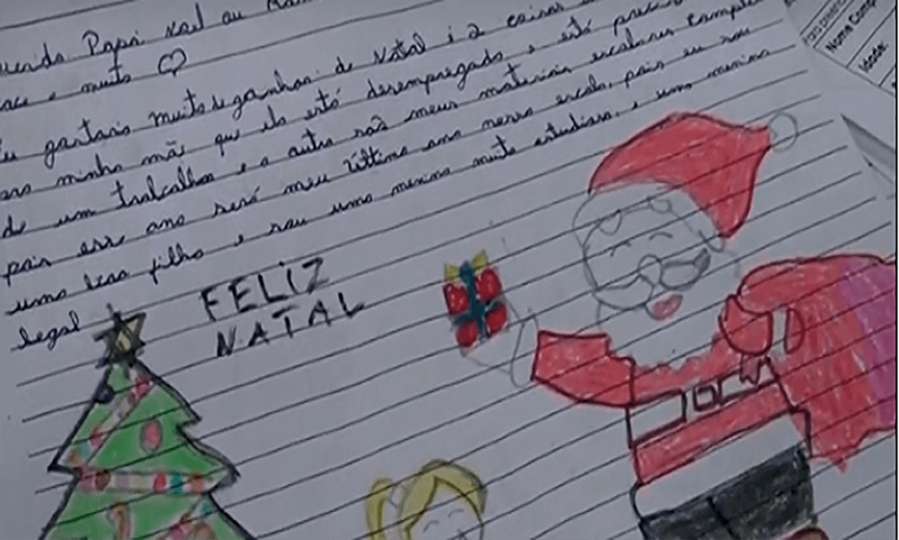 Papai Noel eu
e muito
gostaria muito de ganhar de natal é 2 coisas
minha mãe que ela está desempregada e está
de um trabalho e o outro são meus materiais escolares
pois esse ano será meu último ano nessa escola, pois eu sou
uma boa filha e sou uma menina muito estudiosa, e uma menina
legal
FELIZ
NATAL
Nome Comp
Idade: